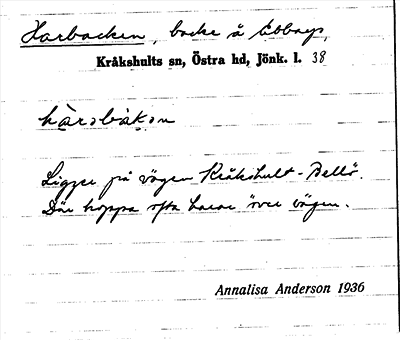 Harbacken, backe å Ebbarp,
Kråkshults sn, Östra hd, Jönk. l. 38
hàrabàkən
Ligger på vägen Kråkshult - Bellö.
Där hoppa ofta harar över vägen.
Annalisa Anderson 1936